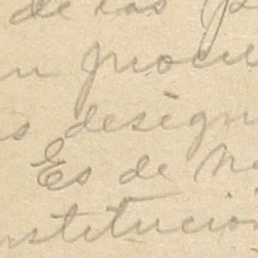 de los p
n procu
s design
Es de no
nstitución